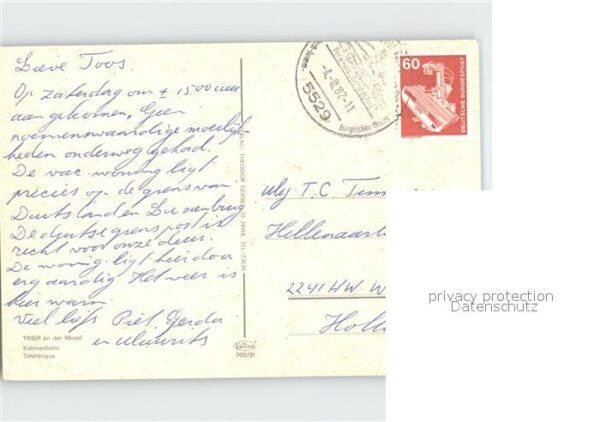 Lieve Toos.
Op zaterdag om ± 1500 uur
aangekomen, Geen
noemenswaardige moeilijk
heden onderweg gehad.
De vac woning ligt
precies op de grens van
Duitsland en Luxemburg
De duitse grenspost is
recht voor onze deur.
De woning ligt hierdoor
erg aardig Het weer is
hier warm
Veel liefs Piet, Gerda
en Maurits
TRIER an der Mosel
Kabinenbahn
Téléférique
706/31
5529
-4.-8.82-11
60
DEUTSCHE BUNDESPOST
T.C.
Hellenaart
2241 HW W
Holl
privacy protection
Datenschutz